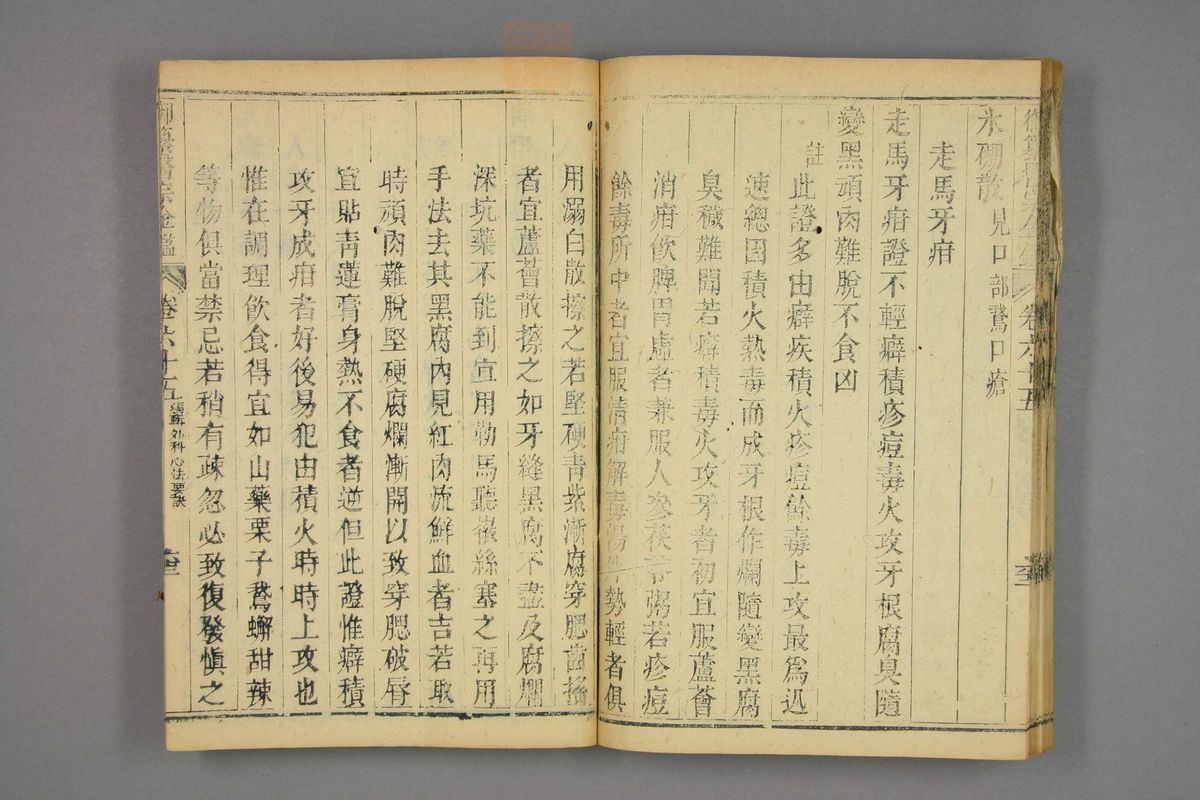 氷硼散見口部鵞口瘡
走馬牙疳
走馬牙疳證不輕癖積疹痘毒火攻牙根腐臭隨
變黑頑肉難脫不食凶
註此證多由癖疾積火疹痘餘毒上攻最為迅
速總因積火熱毒而成牙根作爛隨變黑腐
臭穢難聞若癖積毒火攻牙者初宜服蘆薈
消疳飲脾胃虛者兼服人參茯苓粥若疹痘
餘毒所中者宜服清疳解毒湯勢輕者俱
卷六十五
用溺白散擦之若堅硬青紫漸腐穿腮齒搖
者宜蘆薈散擦之如牙縫黑腐不盡及腐爛
深坑藥不能到宜用勒馬聽嚼絲塞之再用
手法去其黑腐內見紅肉流鮮血者吉若取
時頑肉難脫堅硬腐爛漸開以致穿腮破唇
宜貼青蓮膏身熱不食者逆但此證惟癖積
攻牙成疳者好後易犯由積火時時上攻也
惟在調理飲食得宜如山藥栗子鵞蠏甜辣
等物俱當禁忌若稍有疎忽必致復發愼之
御纂醫宗金鑑 卷六十五 編輯外科心法要訣